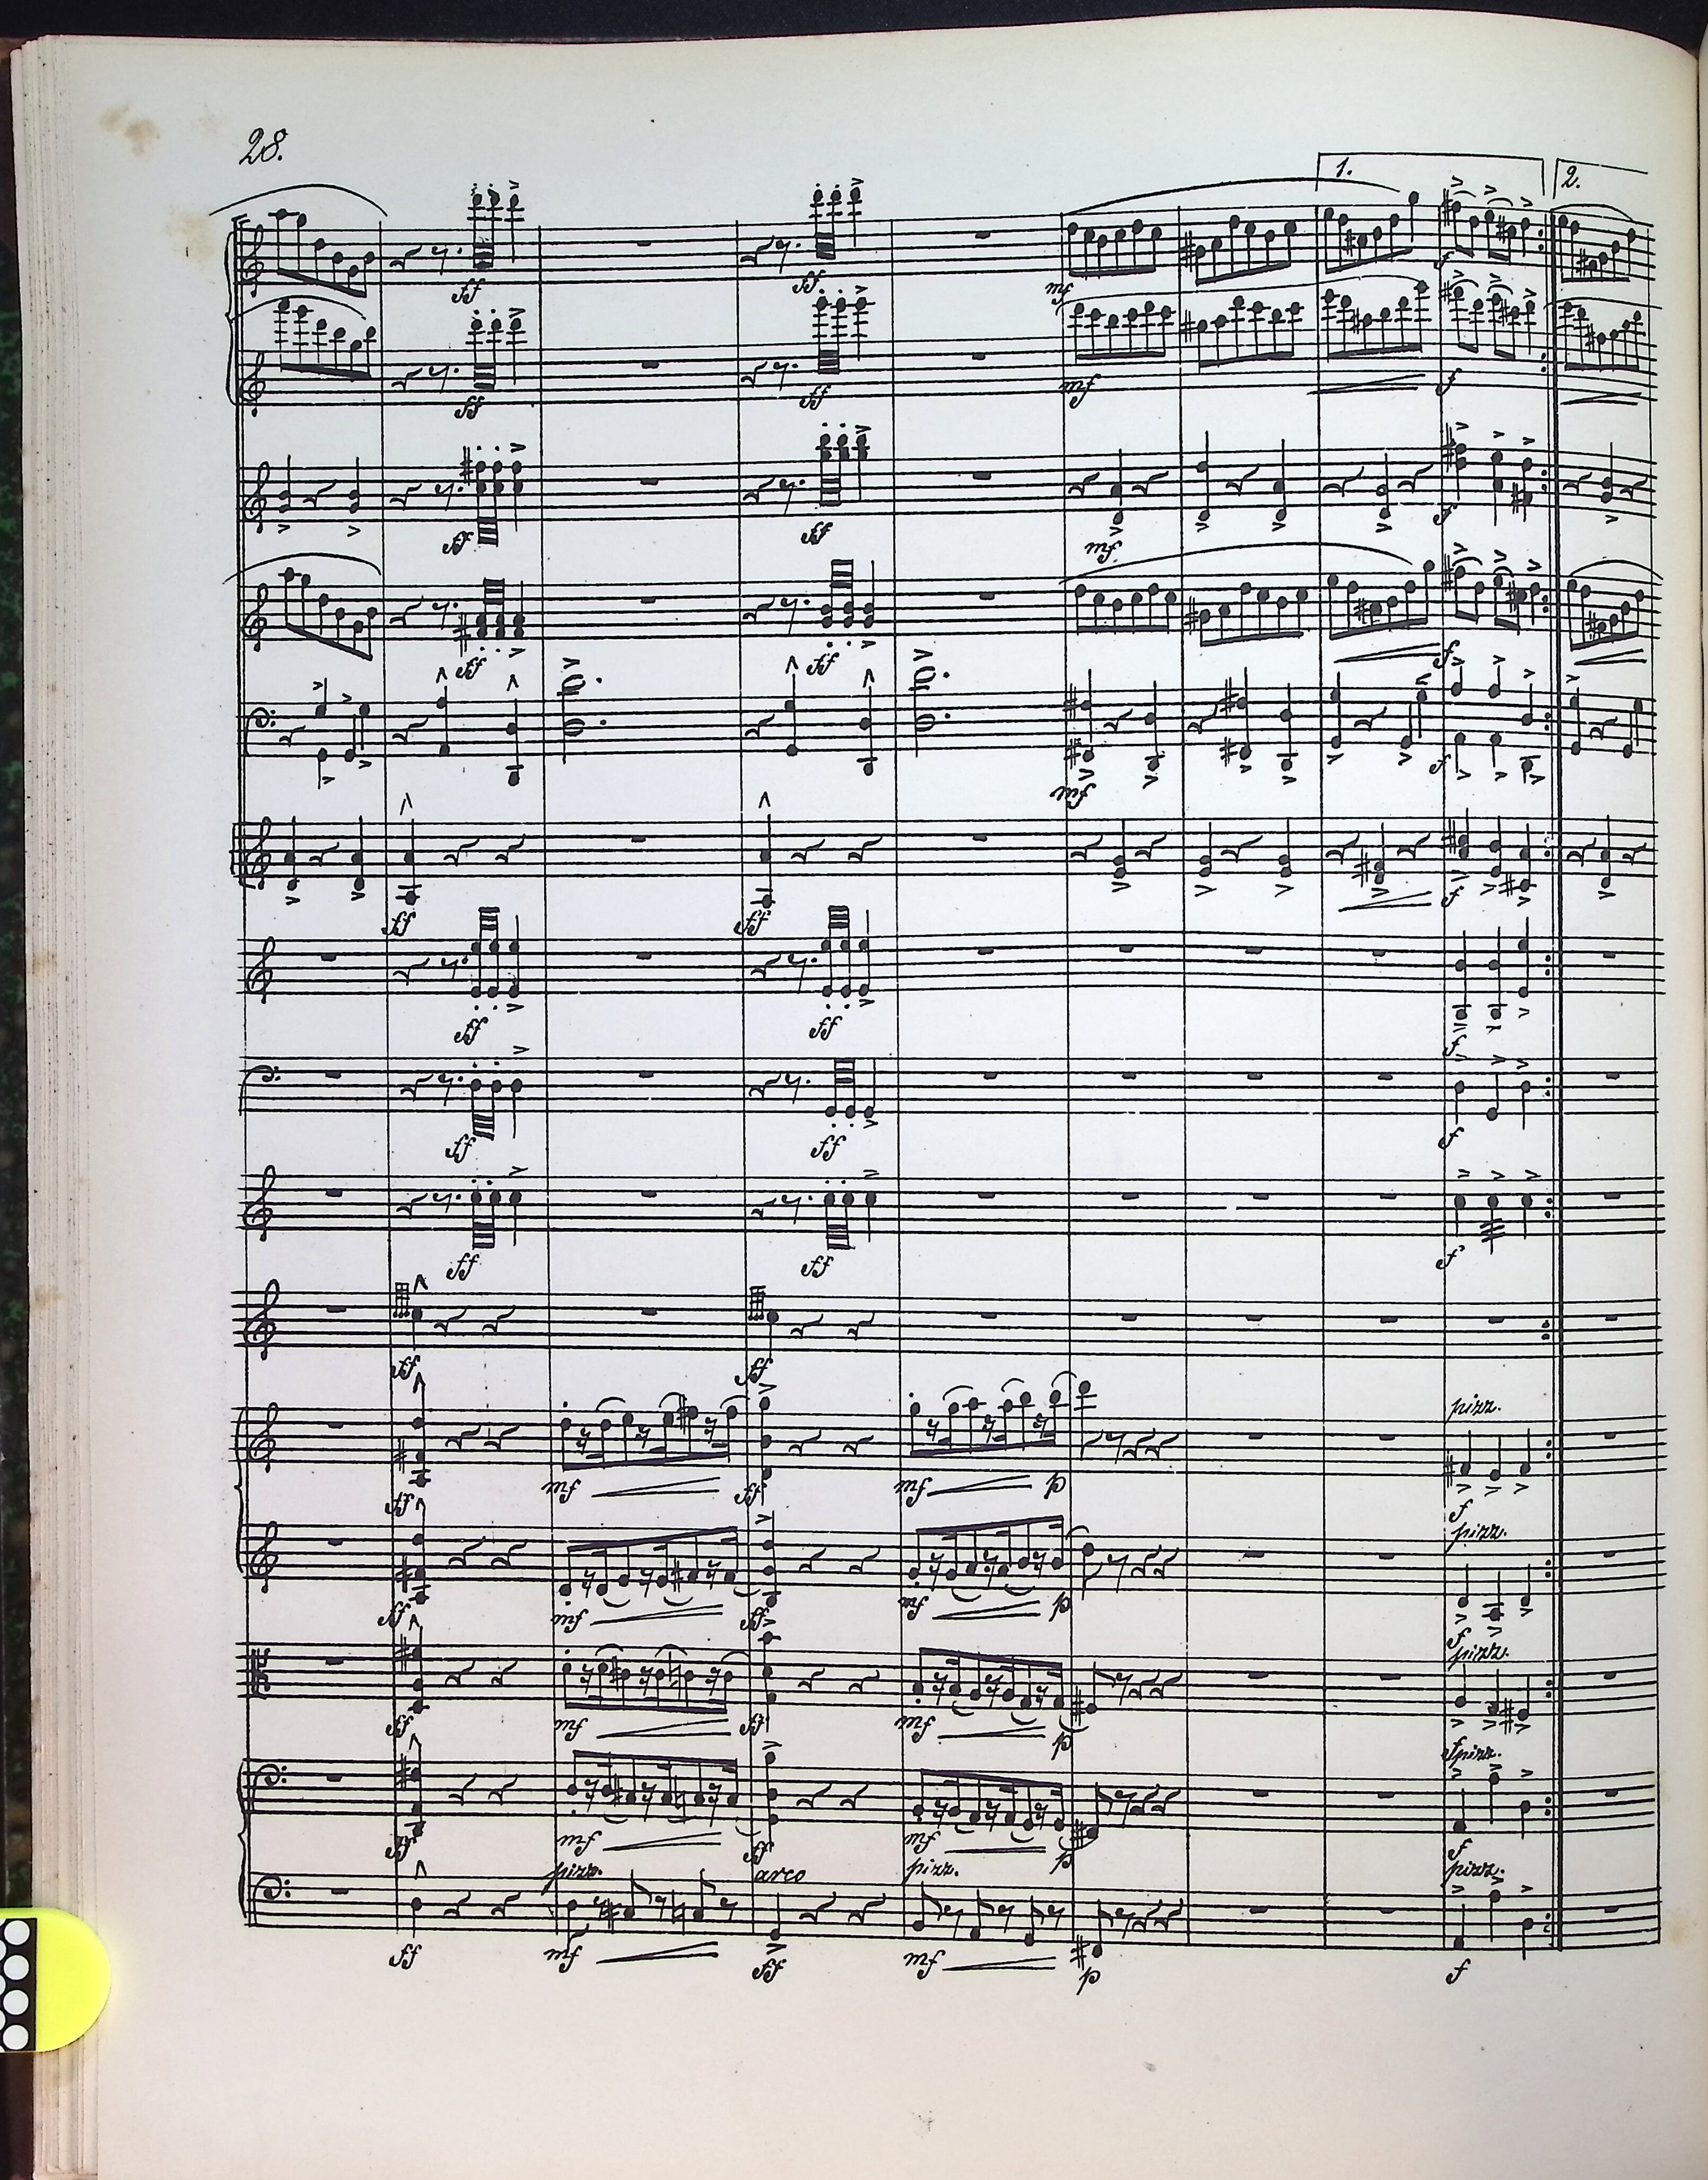 28.
1. 2.
ff ff mf f
ff ff mf f
ff ff mf f
ff ff f
mf f
ff ff f
ff ff f
ff ff f
ff ff f
ff ff
pizz.
ff mf ff mf p f
pizz.
ff mf ff mf p f
pizz.
ff mf ff mf p f
pizz.
ff mf ff mf p f
pizz. arco pizz. pizz.
ff mf ff mf p f